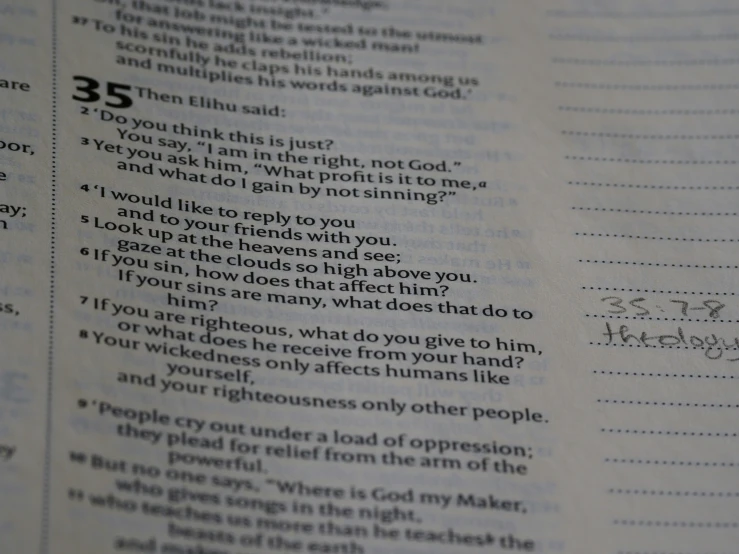 lack insight.'
that Job might be tested to the utmost
for answering like a wicked man!
37 To his sin he adds rebellion;
scornfully he claps his hands among us
and multiplies his words against God.'
are
oor,
ay;
35 Then Elihu said:
2 'Do you think this is just?
You say, "I am in the right, not God."
3 Yet you ask him, "What profit is it to me,a
and what do I gain by not sinning?"
4 'I would like to reply to you
and to your friends with you.
5 Look up at the heavens and see;
gaze at the clouds so high above you.
6 If you sin, how does that affect him?
If your sins are many, what does that do to
him?
7 If you are righteous, what do you give to him,
or what does he receive from your hand?
8 Your wickedness only affects humans like
yourself,
and your righteousness only other people.
9 'People cry out under a load of oppression;
they plead for relief from the arm of the
powerful.
10 But no one says, "Where is God my Maker,
who gives songs in the night,
11 who teaches us more than he teachesb the
beasts of the earth
and makes
35:7-8
theology